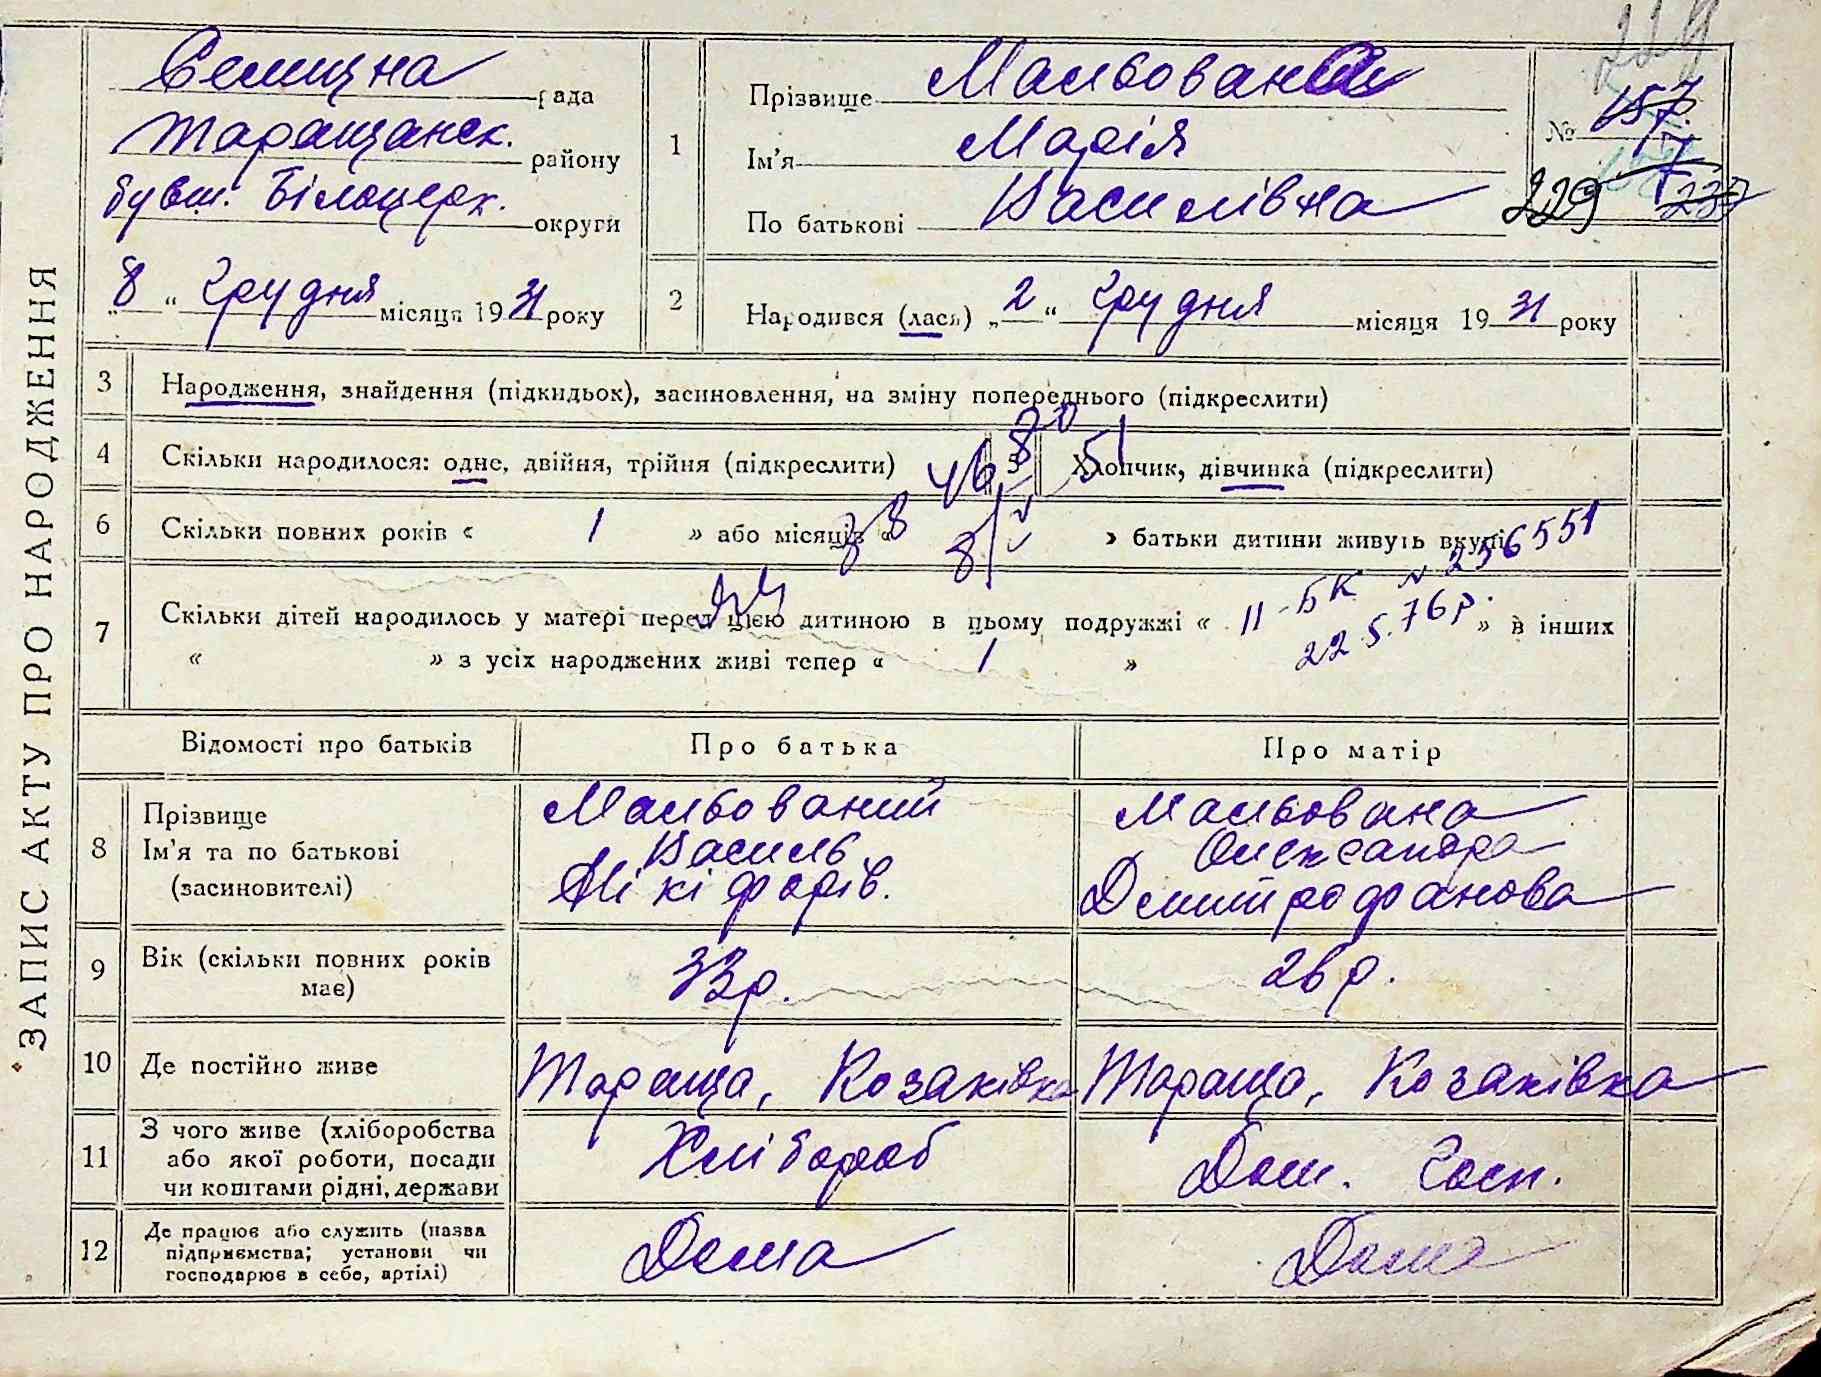 ЗАПИС АКТУ ПРО НАРОДЖЕННЯ
229
Селищна рада
Таращанск. району
бувш. Білоцерк. округи
„8“ грудня місяця 1931 року
1
Прізвище Мальована
Ім'я Марія
По батькові Василівна
№ 157
229
2
Народився (лася) „2“ грудня місяця 1931 року
3 Народження, знайдення (підкидьок), засиновлення, на зміну попереднього (підкреслити)
4 Скільки народилося: одне, двійня, трійня (підкреслити) 5 Хлопчик, дівчинка (підкреслити)
6 Скільки повних років « 1 » або місяців « » батьки дитини живуть вкупі
7 Скільки дітей народилось у матері перед цією дитиною в цьому подружжі « » в інших
« » з усіх народжених живі тепер « 1 »
II-БК № 256551
22.5.76р.
Відомості про батьків Про батька Про матір
8 Прізвище Мальований Мальована
Ім'я та по батькові Василь Олександра
(засиновителі) Нікіфорів. Демитрофанова
9 Вік (скільки повних років має) 33р. 26р.
10 Де постійно живе Тараща, Козаківка Тараща, Козаківка
11 З чого живе (хліборобства
або якої роботи, посади
чи коштами рідні, держави Хлібороб Дом. госп.
12 Де працює або служить (назва
підприємства; установи чи
господарює в себе, артілі) Дома Дома